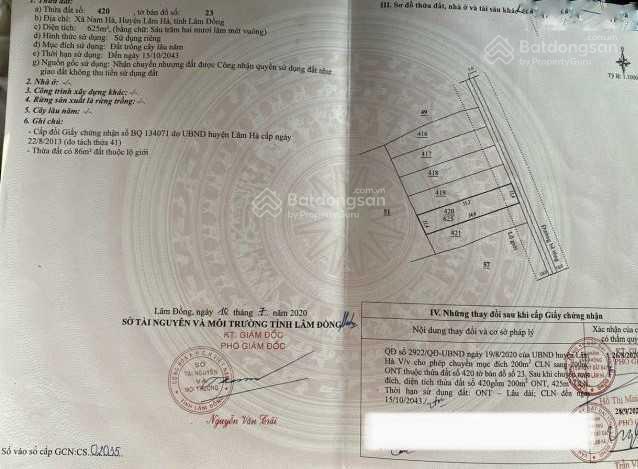 1. Thửa đất:
a) Thửa đất số: 420, tờ bản đồ số: 23
b) Địa chỉ: Xã Nam Hà, Huyện Lâm Hà, tỉnh Lâm Đồng
c) Diện tích: 625m², (bằng chữ: Sáu trăm hai mươi lăm mét vuông)
d) Hình thức sử dụng: Sử dụng riêng
đ) Mục đích sử dụng: Đất trồng cây lâu năm
e) Thời hạn sử dụng: Đến ngày 15/10/2043
g) Nguồn gốc sử dụng: Nhận chuyển nhượng đất được Công nhận quyền sử dụng đất như
giao đất không thu tiền sử dụng đất
2. Nhà ở: -/-
3. Công trình xây dựng khác: -/-
4. Rừng sản xuất là rừng trồng: -/-
5. Cây lâu năm: -/-
6. Ghi chú:
- Cấp đổi Giấy chứng nhận số BQ 134071 do UBND huyện Lâm Hà cấp ngày
22/8/2013 (do tách thửa 41)
- Thửa đất có 86m² đất thuộc lộ giới
Lâm Đồng, ngày 10 tháng 7 năm 2020
SỞ TÀI NGUYÊN VÀ MÔI TRƯỜNG TỈNH LÂM ĐỒNG
KT. GIÁM ĐỐC
PHÓ GIÁM ĐỐC
SỞ
TÀI NGUYÊN
VÀ
MÔI TRƯỜNG
Nguyễn Văn Trãi
Số vào sổ cấp GCN: CS 02035
III. Sơ đồ thửa đất, nhà ở và tài sản khác
Tỷ lệ: 1:1000
49
416
417
418
419
420
625
421
51
57
Lộ giới
Đường bê tông
IV. Những thay đổi sau khi cấp Giấy chứng nhận
Nội dung thay đổi và cơ sở pháp lý
Xác nhận của
có thẩm quyền
QĐ số 2922/QĐ-UBND ngày 19/8/2020 của UBND huyện Lâm
Hà V/v cho phép chuyển mục đích 200m² CLN sang 200m²
ONT thuộc thửa đất số 420 tờ bản đồ số 23. Sau khi chuyển mục
đích, diện tích thửa đất số 420 gồm 200m² ONT, 425m² CLN
Thời hạn sử dụng đất: ONT - Lâu dài; CLN đến ngày
15/10/2043
26/8/20
28/9/20
Batdongsan.com.vn
by PropertyGuru
Batdongsan.com.vn
by PropertyGuru
Batdongsan.com.vn
by PropertyGuru